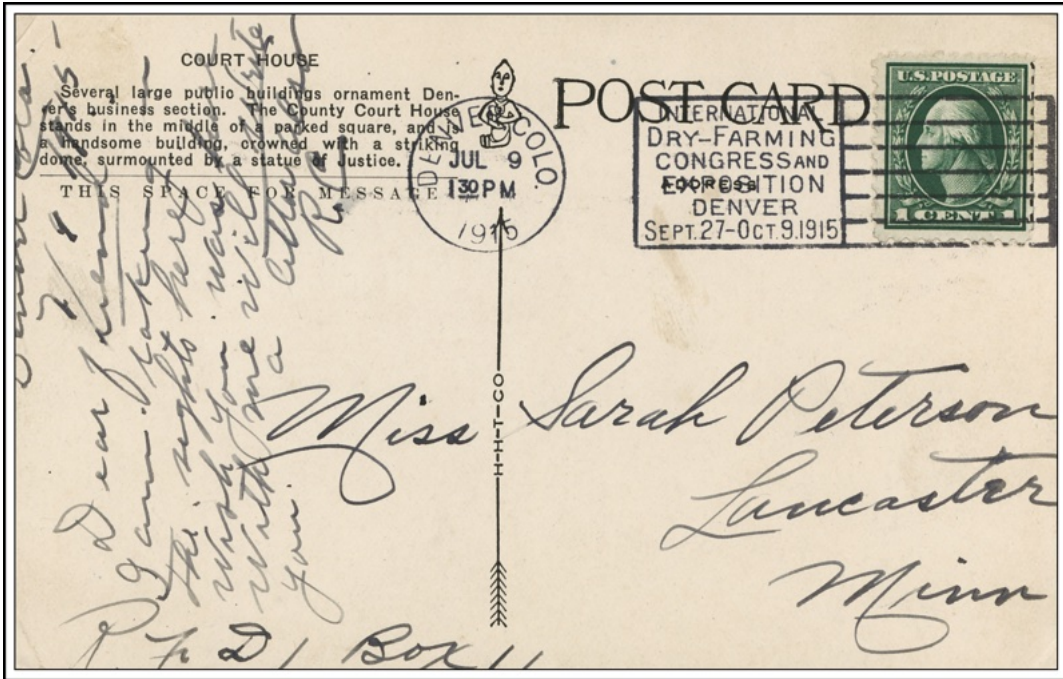 COURT HOUSE
Several large public buildings ornament Den-
ver's business section. The County Court House
stands in the middle of a parked square, and is
a handsome building, crowned with a striking
dome, surmounted by a statue of Justice.
THIS SPACE FOR MESSAGE
POST CARD
ADDRESS
DENVER COLO.
JUL 9
1 30 PM
1915
INTERNATIONAL
DRY-FARMING
CONGRESS AND
EXPOSITION
DENVER
SEPT. 27-OCT. 9. 1915
U.S. POSTAGE
1 CENT 1
H-H-T-CO
Colo.
Dear Friend
I am taking in
the sights here
wish you was
with me will write
you a
Miss Sarah Peterson
Lancaster
Minn
R F D 1 Box 11